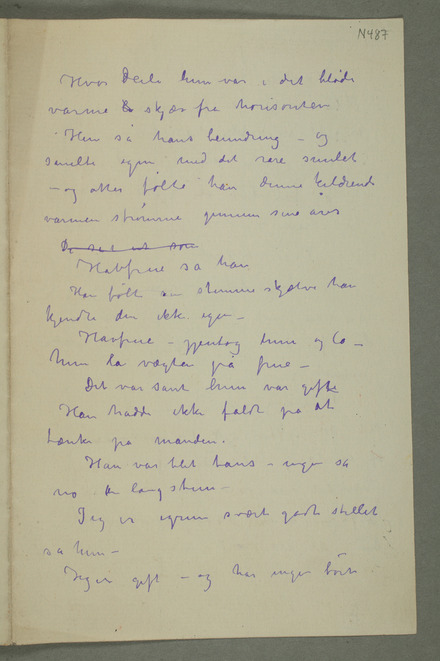 N487
Hvor deilig hun var i det bløde
varme skjær fra horisonten
Hun så hans beundring – og
smilte igen med det rare smilet
– og atter følte han denne kildrende
varmen strømme gennem sine årer
Havfrue sa han
Han følte stemmen skjalv han
kjendte den ikke igen –
Havfrue – gjentog hun og lo –
hun la vægten på frue –
Det var sant hun var gift
Han hadde ikke faldt på at
tænke på manden.
Han var blet taus – ingen sa
no en lang stund –
Jeg er egentlig svært godt stillet
sa hun –
Jeg er gift – og har ingen børn